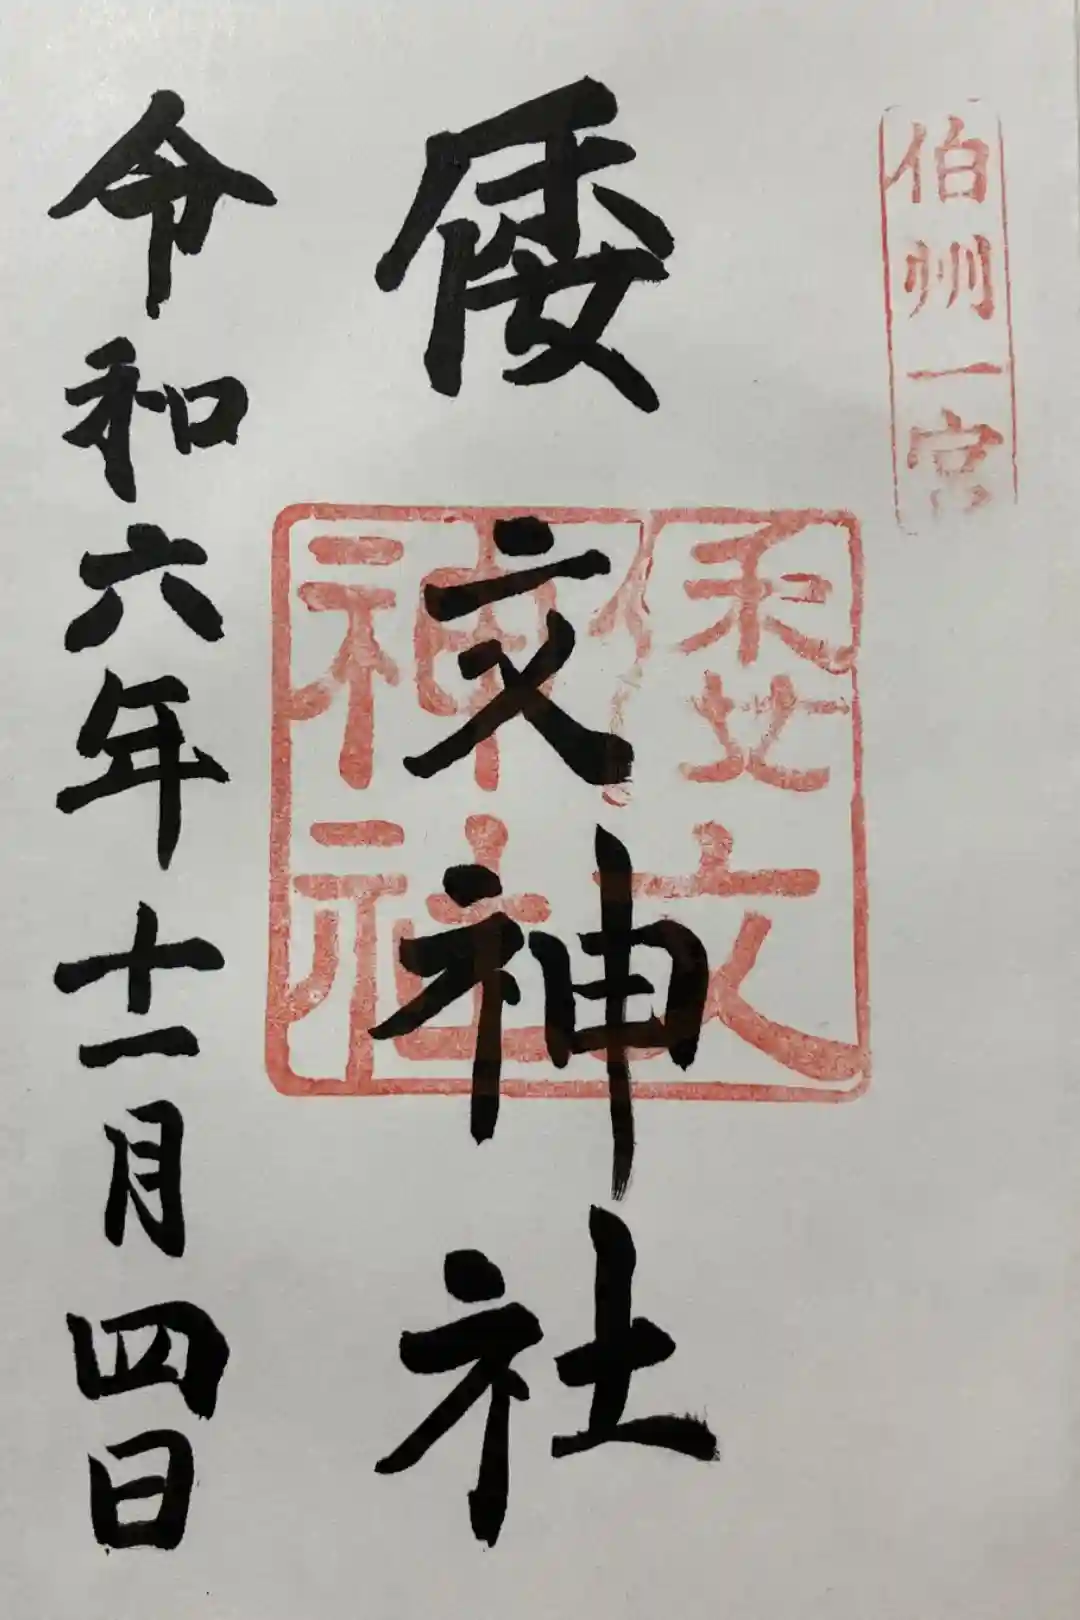 伯州一宮
倭文神社
倭文
神社
令和六年十一月四日